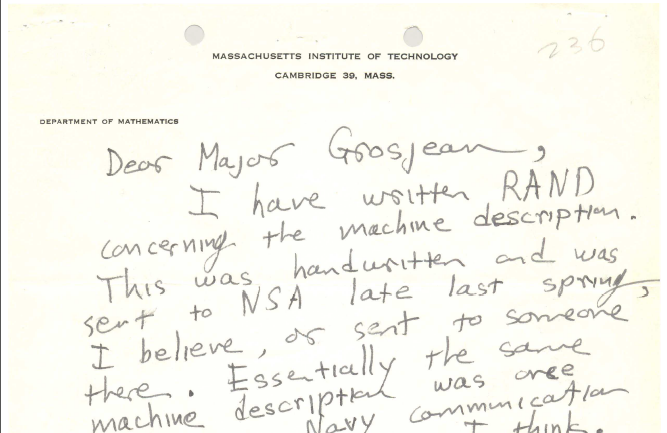 236
MASSACHUSETTS INSTITUTE OF TECHNOLOGY
CAMBRIDGE 39, MASS.
DEPARTMENT OF MATHEMATICS
Dear Major Grosjean,
I have written RAND
concerning the machine description.
This was handwritten and was
sent to NSA late last spring,
I believe, or sent to someone
there. Essentially the same
machine description was once
Navy communication
I think.